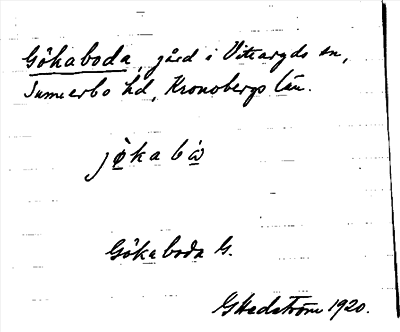 Gökaboda, gård i Vittaryds sn,
Sunnerbo hd, Kronobergs län.
Gökaboda G.
GHedström 1920.